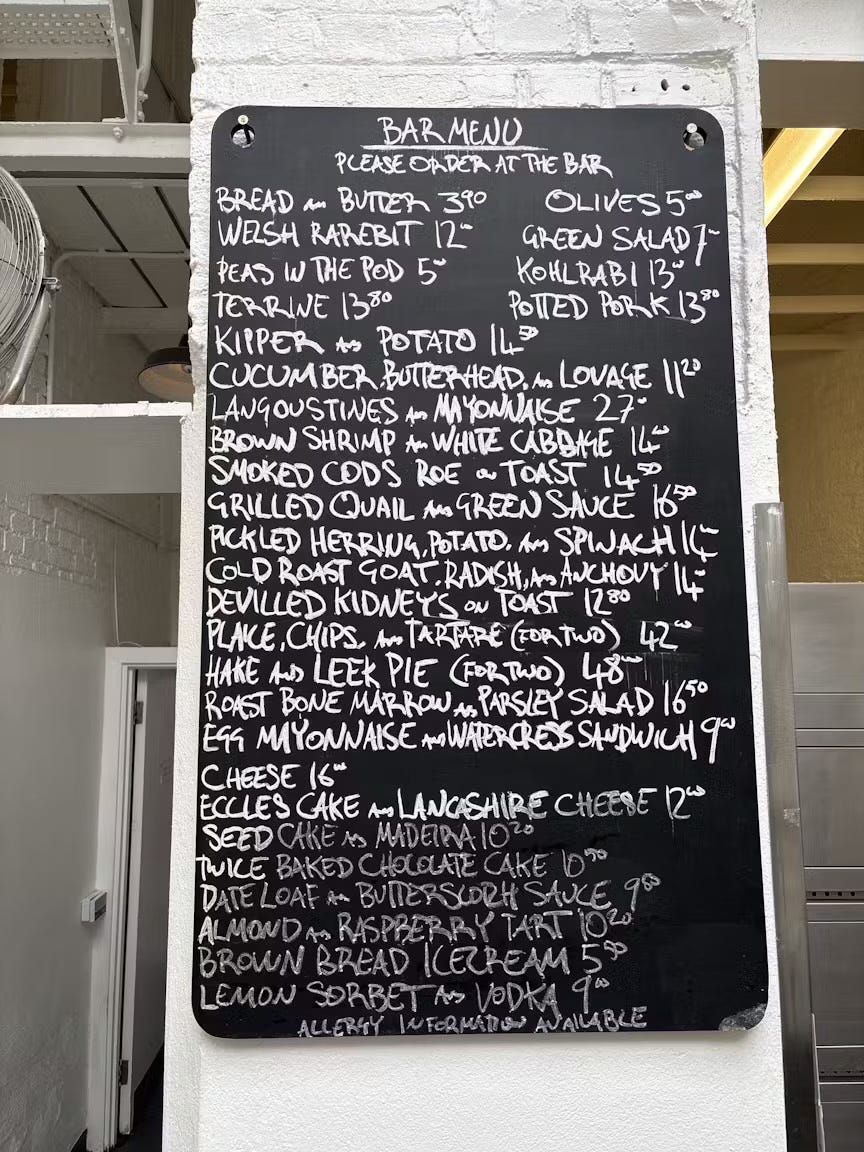 BAR MENU
PLEASE ORDER AT THE BAR
BREAD AND BUTTER 3.90 OLIVES 5.00
WELSH RAREBIT 12 GREEN SALAD 7
PEAS IN THE POD 5 KOHLRABI 13
TERRINE 13.80 POTTED PORK 13.80
KIPPER AND POTATO 14.50
CUCUMBER, BUTTERHEAD, AND LOVAGE 11.20
LANGOUSTINES AND MAYONNAISE 27
BROWN SHRIMP AND WHITE CABBAGE 14
SMOKED CODS ROE ON TOAST 14.50
GRILLED QUAIL AND GREEN SAUCE 16.50
PICKLED HERRING, POTATO, AND SPINACH 14
COLD ROAST GOAT, RADISH, AND ANCHOVY 14
DEVILLED KIDNEYS ON TOAST 12.80
PLAICE, CHIPS, AND TARTARE (FOR TWO) 42.00
HAKE AND LEEK PIE (FOR TWO) 48.00
ROAST BONE MARROW AND PARSLEY SALAD 16.50
EGG MAYONNAISE AND WATERCRESS SANDWICH 9.00
CHEESE 16
ECCLES CAKE AND LANCASHIRE CHEESE 12.00
SEED CAKE AND MADEIRA 10.20
TWICE BAKED CHOCOLATE CAKE 10.50
DATE LOAF AND BUTTERSCOTCH SAUCE 9.80
ALMOND AND RASPBERRY TART 10.20
BROWN BREAD ICECREAM 5.50
LEMON SORBET AND VODKA 9.00
ALLERGY INFORMATION AVAILABLE